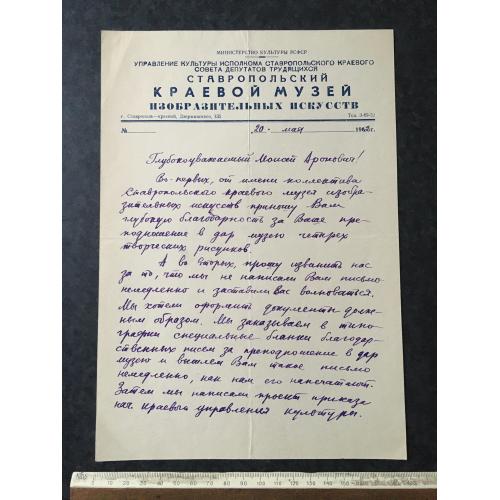 МИНИСТЕРСТВО КУЛЬТУРЫ РСФСР
УПРАВЛЕНИЕ КУЛЬТУРЫ ИСПОЛКОМА СТАВРОПОЛЬСКОГО КРАЕВОГО
СОВЕТА ДЕПУТАТОВ ТРУДЯЩИХСЯ
СТАВРОПОЛЬСКИЙ
КРАЕВОЙ МУЗЕЙ
ИЗОБРАЗИТЕЛЬНЫХ ИСКУССТВ
г. Ставрополь-краевой, Дзержинского, Тел.
№ 20 - мая г.
Глубокоуважаемый Моисей Аронович!
Во-первых, от имени коллектива
Ставропольского краевого музея изобра-
зительных искусств приношу Вам
глубокую благодарность за Ваше пре-
подношение в дар музею четырех
творческих рисунков.
А во вторых, прошу извинить нас
за то, что мы не написали Вам письмо
немедленно и заставили Вас волноваться.
Мы хотели оформить документы долж-
ным образом. Мы заказываем в типо-
графии специальные бланки благодар-
ственных писем за преподношение в дар
музею и вышлем Вам такое письмо
немедленно, как нам его напечатают.
Затем мы написали проект приказа
нач краевого управления культуры.
0 10 20 30 40 50 60 70 80 90 100 110 120 130 140 150 160 170 180 190 200